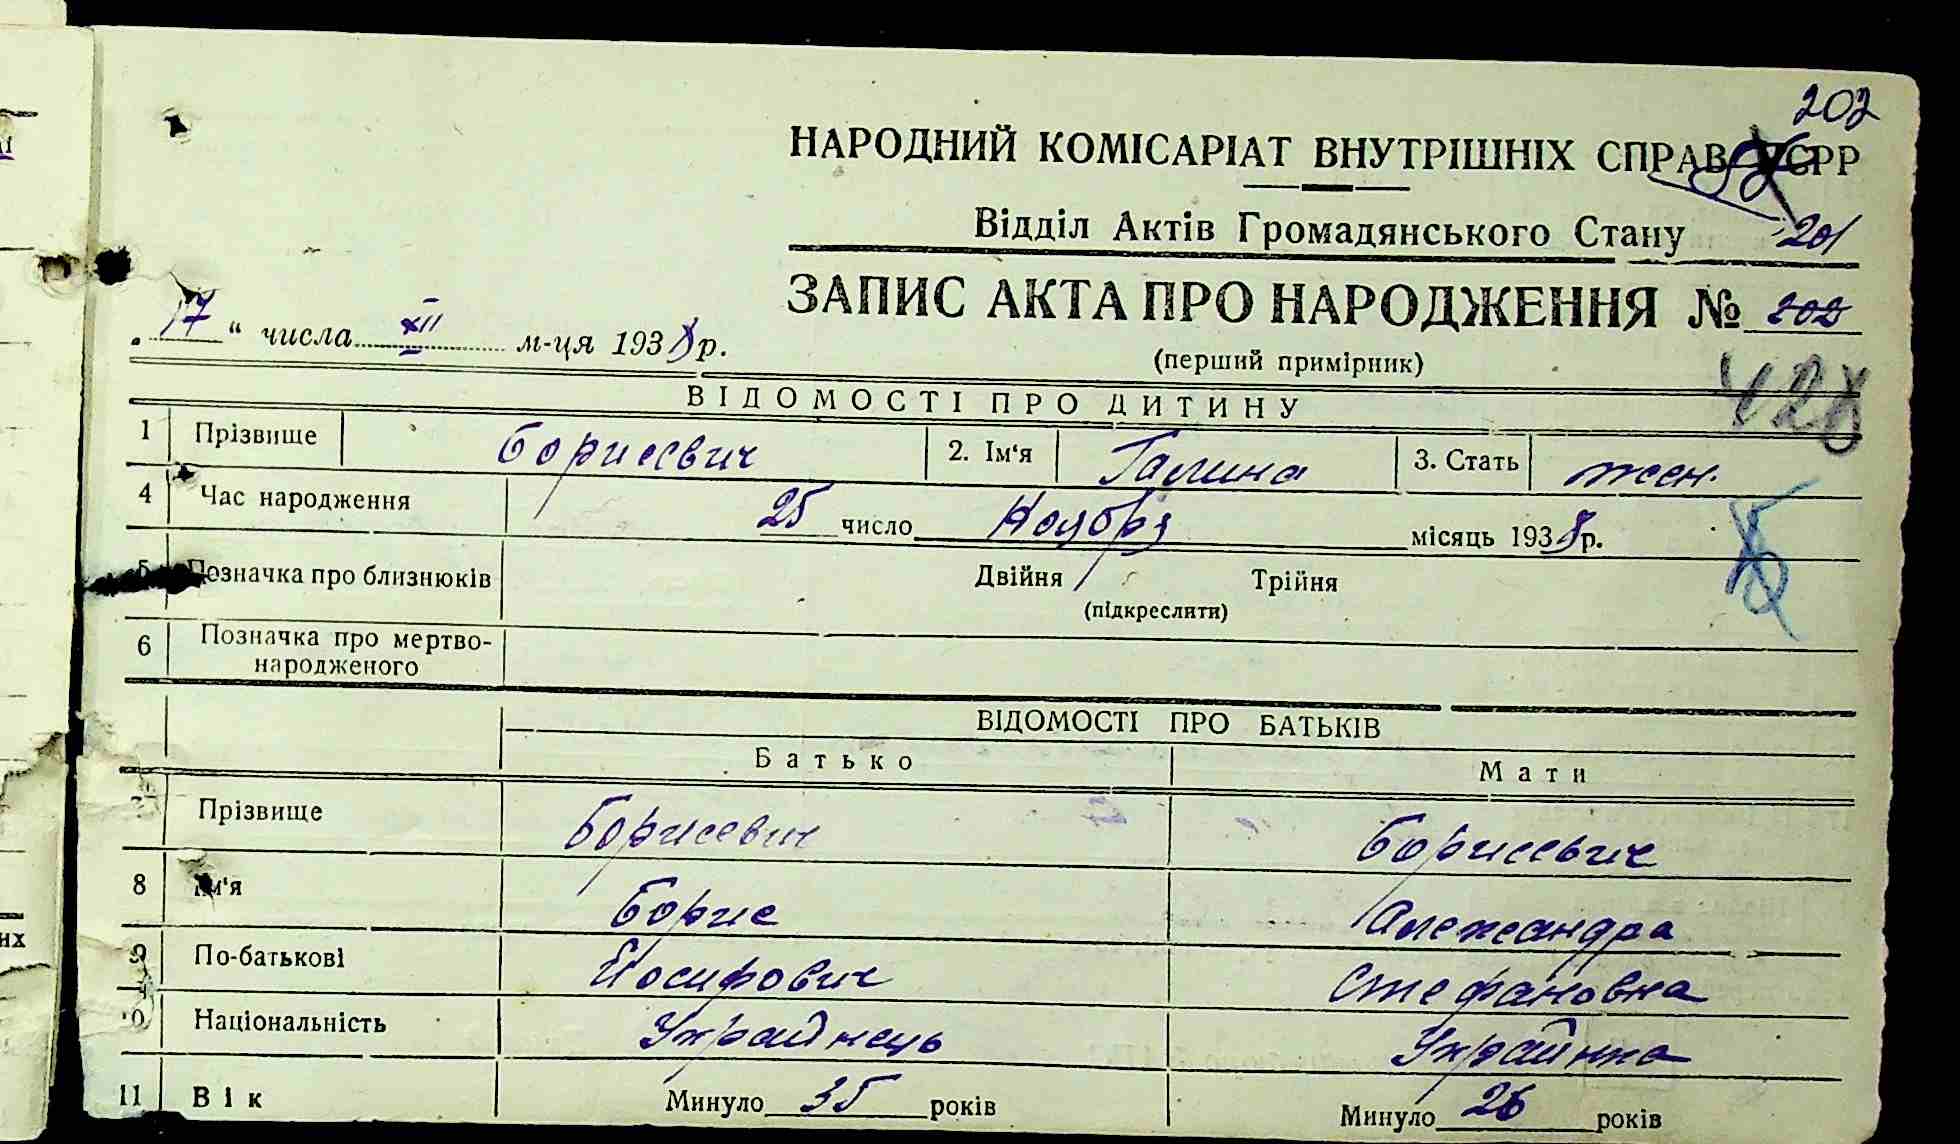 202
НАРОДНИЙ КОМІСАРІАТ ВНУТРІШНІХ СПРАВ УСРР
Відділ Актів Громадянського Стану 201
ЗАПИС АКТА ПРО НАРОДЖЕННЯ № 202
„17“ числа XII м-ця 1938 р.
(перший примірник)
428
ВІДОМОСТІ ПРО ДИТИНУ
1 Прізвище Борисевич 2. Ім'я Галина 3. Стать жен.
4 Час народження 25 число Ноября місяць 1938 р.
5 Позначка про близнюків Двійня Трійня
(підкреслити)
6 Позначка про мертво-
народженого
ВІДОМОСТІ ПРО БАТЬКІВ
Батько Мати
7 Прізвище Борисевич Борисевич
8 Ім'я Борис Александра
9 По-батькові Йосифович Стефановна
10 Національність Украйнець Украйнка
11 Вік Минуло 35 років Минуло 26 років
их